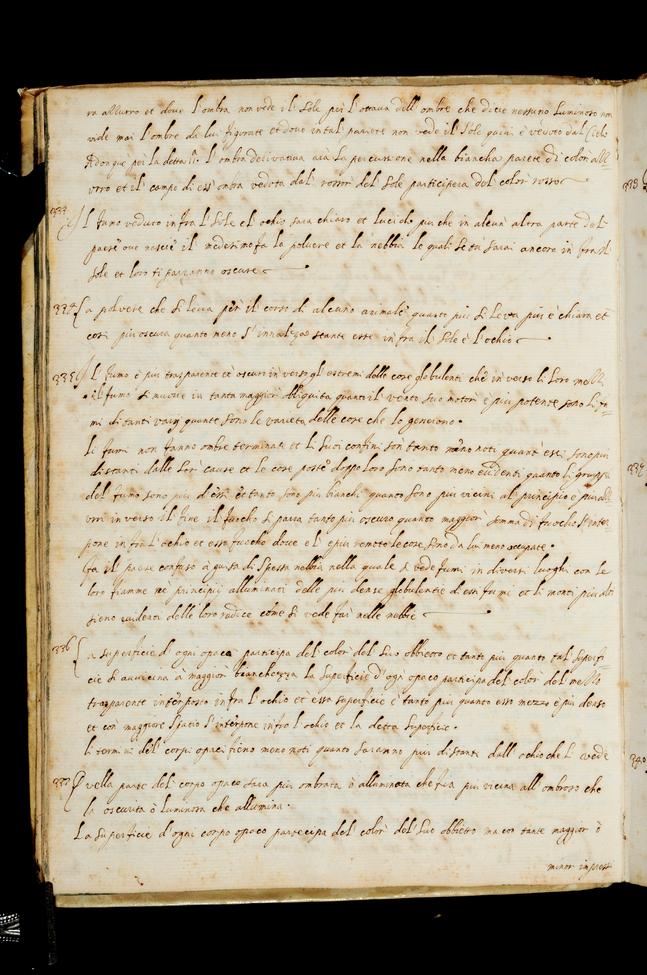 ra allurro et doue l'ombra non uede il Sole per l'ottaua dell'ombre che dice nessuno luminoso non
uide mai l'ombre da lui figurate et doue in tal pariete non uede il Sole quiui è ueduto dal Cielo
Adonque per la detta 11.ª l'ombra deriuatiua arà la percussione nella biancha parete di color all
urro et il campo di ess'ombra ueduta dal rossor del Sole participera del color rosso
333 Il fumo ueduto infra l'Sole e l'ochio sara chiaro et lucido piu che in alcun'altra parte del
paese oue nasce il medesimo fa la poluere et la nebbia le quali se tu sarai ancora infra il
sole et loro ti parranno oscure
334 La poluere che si leua per il corso di alcuno animale quanto piu si leua piu è chiara et
cosi piu oscura quanto meno s'innalza stante essa infra il Sole e l'ochio
335 Il fumo è piu trasparente et oscuro inuerso gl'estremi delle cose globulenti che inuerso li loro mezzi
il fumo si muoue in tanta maggior obliquita quanto il uento suo motore è piu potente sono li fu=
mi di tanti uarij quante sono le uarieta delle cose che lo generono.
Li fumi non fanno ombre terminate et li suoi confini son tanto meno noti quant'essi sono piu
distanti dalle lor cause et le cose poste doppo loro sono tanto meno euidenti quanto li gruppi
del fumo sono piu densi et tanto sono piu bianchi quanto sono piu uicini al principio e piu all
urri inuerso il fine il fuocho si parra tanto piu oscuro quanto maggior somma di fuocho s'inter=
pone infra l'ochio et esso fuocho doue è piu remoto le cose sono da lui meno occupate.
fa il paese confuso à guisa di spessa nebbia nella quale si uede fumi in diuersi luoghi con le
loro fiamme ne principij alluminati delle piu dense globulentie di essi fumi et li monti piu alti
sieno euidenti delle loro radice come si uede far nelle nebbie
336 La superficie d'ogni opaco participa del color del suo obbietto et tanto piu quanto tal superfi=
cie si auuicina à maggior bianchezza. la superficie d'ogni opaco participa del color del mezzo
trasparente interposto infra l'ochio et essa superficie è tanto piu quanto esso mezzo è piu denso
et con maggiore spatio s'interpone infra l'ochio et la detta superficie.
li termini de' corpi opaci fieno meno noti quanto saranno piu distanti dall'ochio che l uede
337 Quella parte del corpo opaco sara piu ombrata ò alluminata che fia piu uicina all'ombroso che
la oscurità ò luminoso che allumina.
La superficie d'ogni corpo opaco partecipa del color del suo obbietto ma con tante maggior ò
minor impres